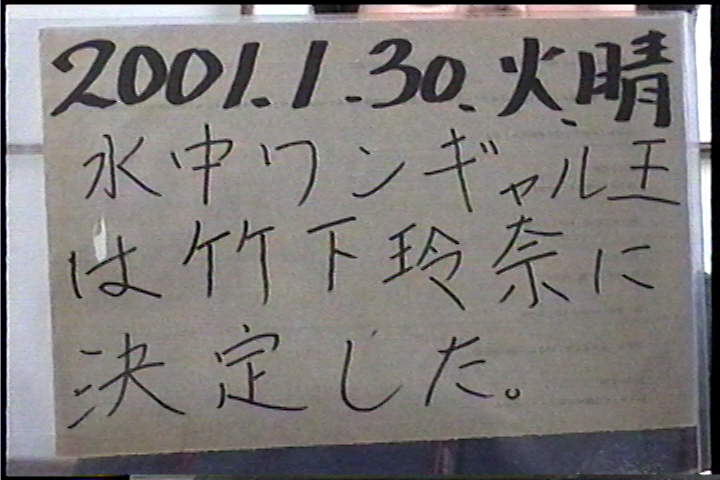 2001.1.30.火.晴
水中ワンギャル王
は竹下玲奈に
決定した。